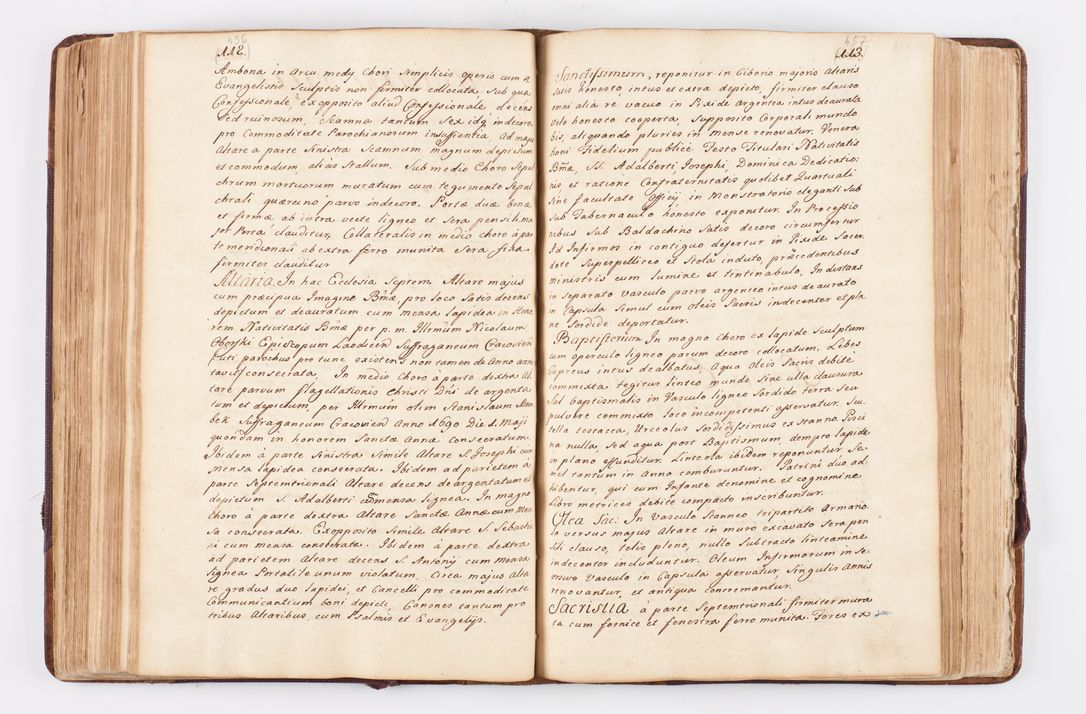 456
112.
Ambona in Arcu medij Chori Simplicis operis cum 4
Evangelistis Sculptis non firmiter collocata, Sub qua
Confessionale, ex opposito aliud Confessionale decens
sed ruinosum, Scamna tantum Sex idq indecora
pro Commoditate Parochianorum insufficientia. Ad majus
Altare a parte Sinistra Scamnum magnum depictum
et commodum, alias Stallum. Sub medio Choro Sepul
chrum mortuorum muratum cum tegumento Sepul
chrali quærcino parvo indecoro. Portæ duæ bonæ
et firmæ ab intra vecte ligneo et Sera pensili ma
jor Porta clauditur, Collateralis in medio choro à par
te meridionali ab extra ferro munita Sera fixa
firmiter clauditur
Altaria. In hac Ecclesia Septem. Altare majus
cum præcipua Imagine Bmæ pro loco Satis decens
depictum et deauratum cum mensa lapidea in Hono
rem Nativitatis Bmæ per p. m. Illrmum Nicolaum
Oborski Episcopum Laodicen Suffraganeum Cracovien
huti parochus pro tunc existens non tamen de Anno anno
tavit consecrata. In medio Choro à parte dextra Al
tare parvum flagellationis Christi Dni de argenta
tum et depictum, per Illrmum olim Stanislaum
bek Suffraganeum Cracovien Anno 1690 Die 1. Maji
quondam in honorem Sanctæ Annæ consecratum.
Ibidem à parte Sinistra Simile Altare S. Josephi cum
mensa lapidea consecrata. Ibidem ad parietem à
parte Septemtrionali Altare decens de argentatum et
depictum S. Adalberti cum mensa lignea. In magno
Choro à parte dextra Altare Sanctæ Annæ cum Men
sa consecrata. Ex opposito Simile Altare S. Sebastia
ni cum mensa consecrata. Ibidem à parte dextra
ad parietem Altare decens S. Antonij cum mensa
lignea Portatile unum violatum, Circa majus Alta
re gradus duo lapidei, et Cancelli pro commoditate
Communicantium boni depicti, Canones tantum pro
tribus Altaribus, cum Psalmis et Evangelijs.
457
113.
Sanctissimum, reponitur in Ciborio majoris Altaris
Satis honesto, intus et extra depicto, firmiter clauso
omni alia re vacuo in Pixide argentea intus deaurata
velo honesto cooperta, Supposito Corporali mundo
bis, aliquando pluries in mense renovatur. Venera
tioni Fidelium publicè Festo Titulari Nativitatis
Bmæ, SS. Adalberti, Josephi, Dominica Dedicatio:
nis et ratione Confraternitatis quolibet Quartuali
Sine facultate Officij in Monstratorio eleganti Sub
Sub Tabernaculo honesto exponitur. In Processio
nibus Sub Baldachino Satis decoro circumfertur
Ad Infirmos in contiguo defertur in Pixide Sacer
dote Superpelliceo et Stolâ induto, præcedentibus
ministris cum lumine et tintinabulo, In distans
in Separato vasculo parvo argenteo intus deaurato
in Capsula Simul cum Oleis Sacris indecenter et pla
ne Sordide deportatur.
Baptisterium In magno choro ex lapide Sculptum
cum operculo ligneo parum decoro collocatum. Lebes
Cupreus intus dealbatus. Aqua Oleis Sacris debitè
commixta tegitur linteo mundo, Sine ulla clausura
Sal baptismalis in Vasculo ligneo Sordido terra Seu
pulvere commixto loco incompetenti asservatur. Scu
tella testacea, Urceolus Sordidissimus ex stanno. Pisci
na nulla, Sed aqua post Baptismum, dempto lapide
in plano effunditur. Linteola ibidem reponuntur Se:
mel tantum in Anno comburuntur. Patrini duo ad:
hibentur, qui cum Infante de nomine et cognomine
libro metrices debitè compacto inscribuntur.
Olea Sac: In Vasculo Stanneo tripartito Armario
lo versus majus Altare in muro excavato Sera pen
sili clauso, telis pleno, nullo Subtracto linteamine
indecenter includuntur. Oleum Infirmorum in Se:
moto Vasculo in Capsula asservatur, Singulis Annis
renovantur, et antiqua concremantur.
Sacristia à parte Septemtrionali firmiter mura
ta cum fornice et fenestra ferro munita. Fores ex